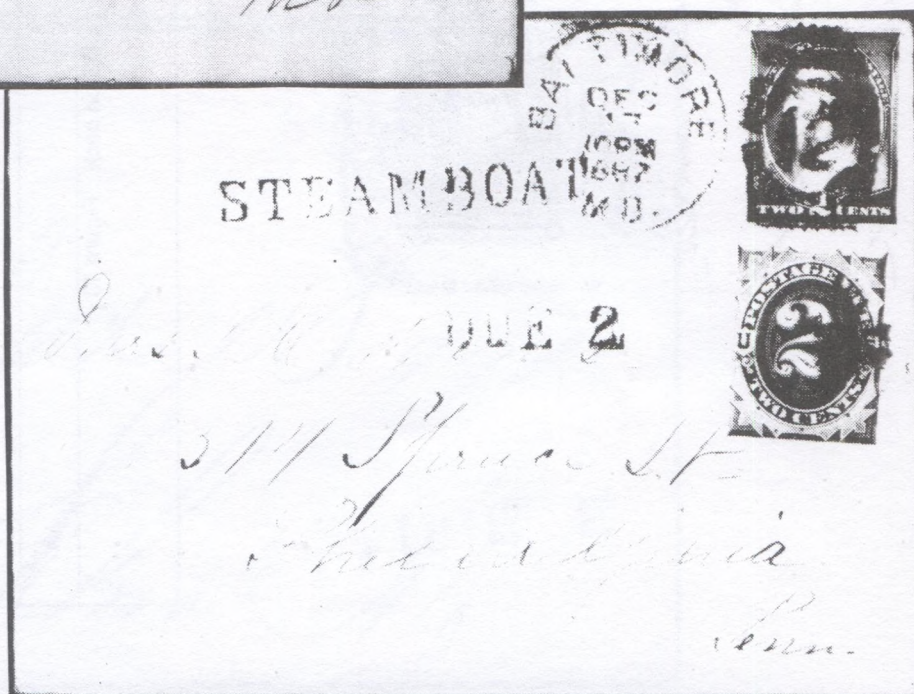 Mo
BALTIMORE
DEC
10PM
1887
MD.
STEAMBOAT
TWO 2 CENTS
DUE 2
POSTAGE
2
TWO CENTS
314 Spruce St
Philadelphia
Penn.